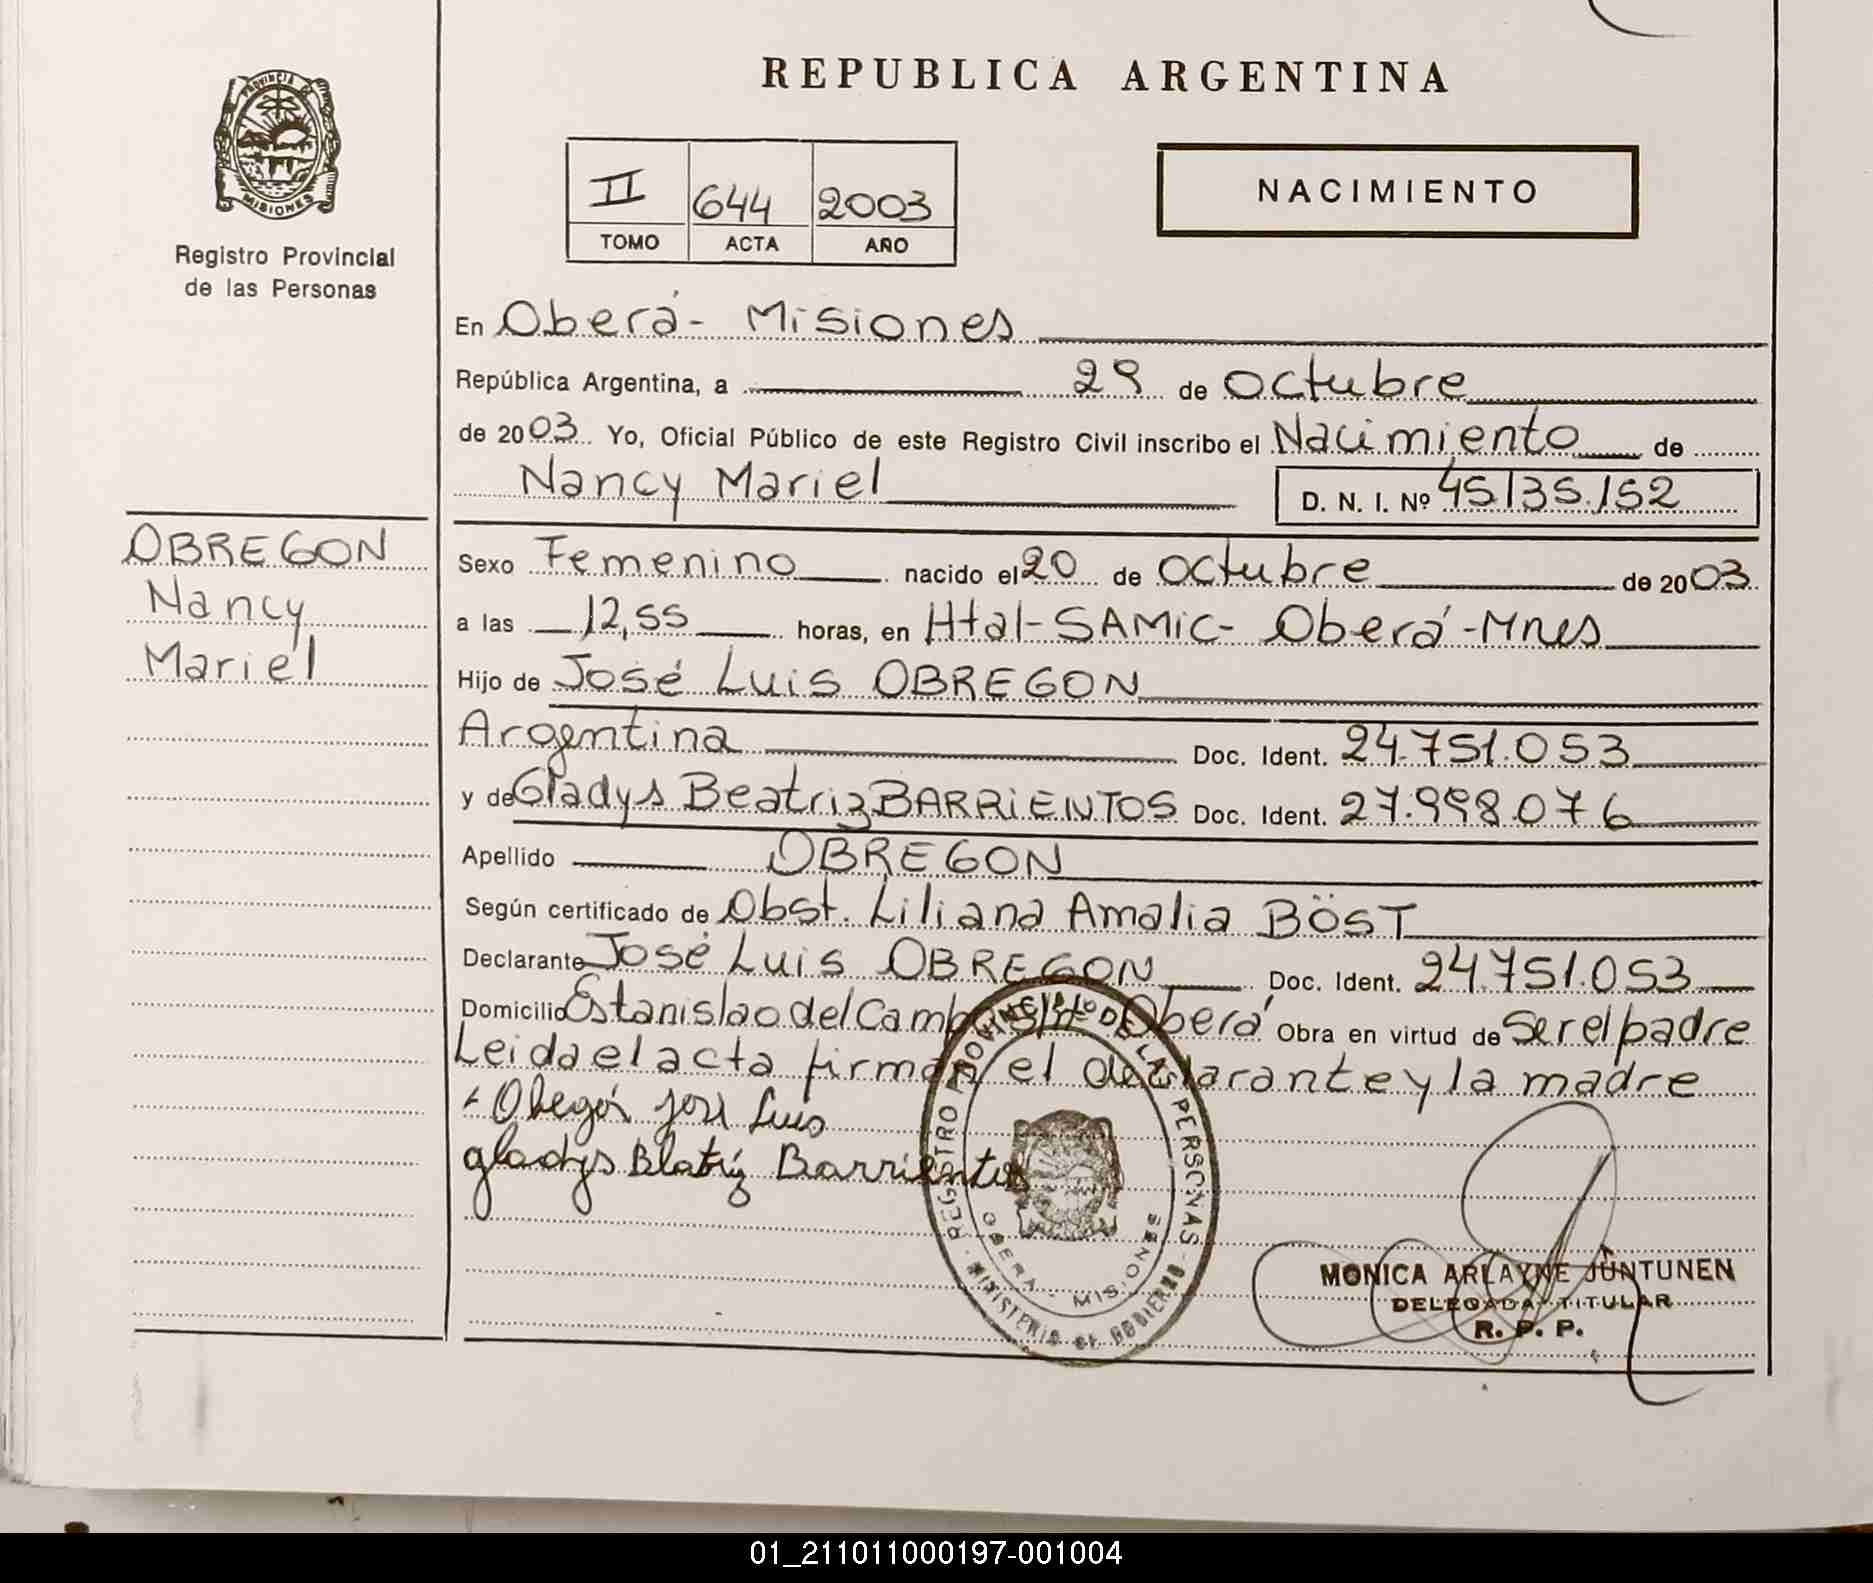 REPUBLICA ARGENTINA
PROVINCIA DE MISIONES
Registro Provincial
de las Personas
II 644 2003
TOMO ACTA AÑO
NACIMIENTO
En Oberá - Misiones
República Argentina, a 29 de octubre
de 2003. Yo, Oficial Público de este Registro Civil inscribo el Nacimiento de
Nancy Mariel D. N. I. Nº 45.135.152
OBREGON
Nancy
Mariel
Sexo Femenino nacido el 20 de octubre de 2003
a las 12,55 horas, en Htal-SAMIC- Oberá-Mnes
Hijo de José Luis OBREGON
Argentina Doc. Ident. 24.751.053
y de Gladys Beatriz BARRIENTOS Doc. Ident. 27.998.076
Apellido OBREGON
Según certificado de Obst. Liliana Amalia BÖST
Declarante José Luis OBREGON Doc. Ident. 24.751.053
Domicilio Estanislao del Campo s/nº Oberá Obra en virtud de Ser el padre
Leida el acta firman el declarante y la madre
Obregón José Luis
gladys Beatriz Barrientos
REGISTRO PROVINCIAL DE LAS PERSONAS
MINISTERIO DE GOBIERNO
OBERA - MISIONES
MONICA ARLAYNE JUNTUNEN
DELEGADA TITULAR
R. P. P.
01_211011000197-001004